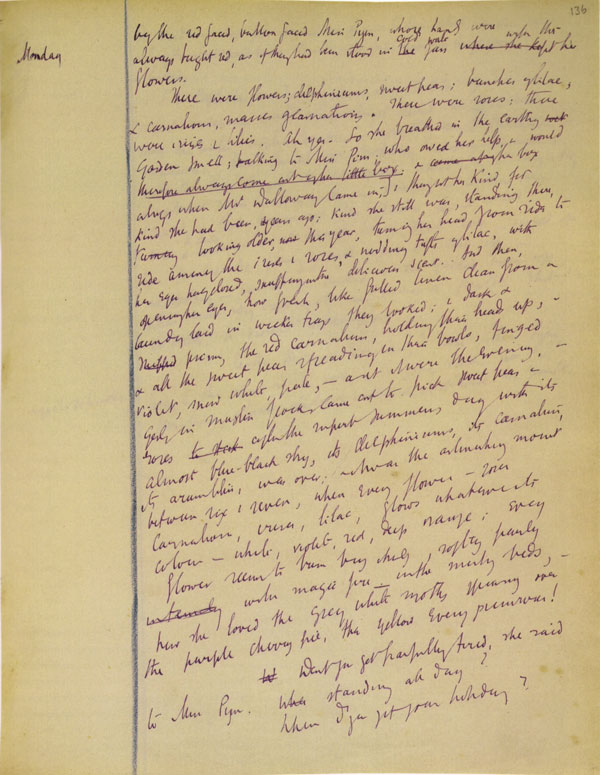 136
Monday
by the red faced, button faced Miss Pym, whose hands were
always bright red, as if they had been stood in cold water with the
flowers.
There were flowers; delphiniums, sweet peas; bunches of lilac,
& carnations, masses of carnations. There were roses: there
were irises & lilies. Ah yes. So she breathed in the earthy
garden smell; talking to Miss Pym, who owed her help, & would
therefore always come out of her little box
always, when Mrs Dalloway came in; thought her kind, for
kind she had been, years ago; kind she still was, standing there,
looking older, this year, turning her head, from side to
side among the irises & roses, & nodding tufts of lilac, with
her eyes half closed, snuffing in the delicious scent. And then,
opening her eyes, how fresh, like frilled linen clean from a
laundry laid in wicker trays they looked; & dark &
prim the red carnations, holding their heads up, –
& all the sweet peas spreading in their bowls, tinged
violet, snow white, pale, – as if it were the evening, –
girls in muslin frocks came out to pick sweet peas &
roses after the superb summers day with its
almost blue-black sky, its delphiniums, its carnations,
its arum lilies, was over; & it was the moment
between six & seven, when every flower – roses
carnations, irises, lilac, glows
colour – white, violet, red, deep orange; every
flower seems to burn by itself, softly, purely
with magic fire – in the misty beds, –
how she loved the grey white moths spinning over
the purple cherry pie, the yellow evening primroses!
Don't you get frightfully tired, she said
to Miss Pym. standing all day?
When d'you get your holiday?